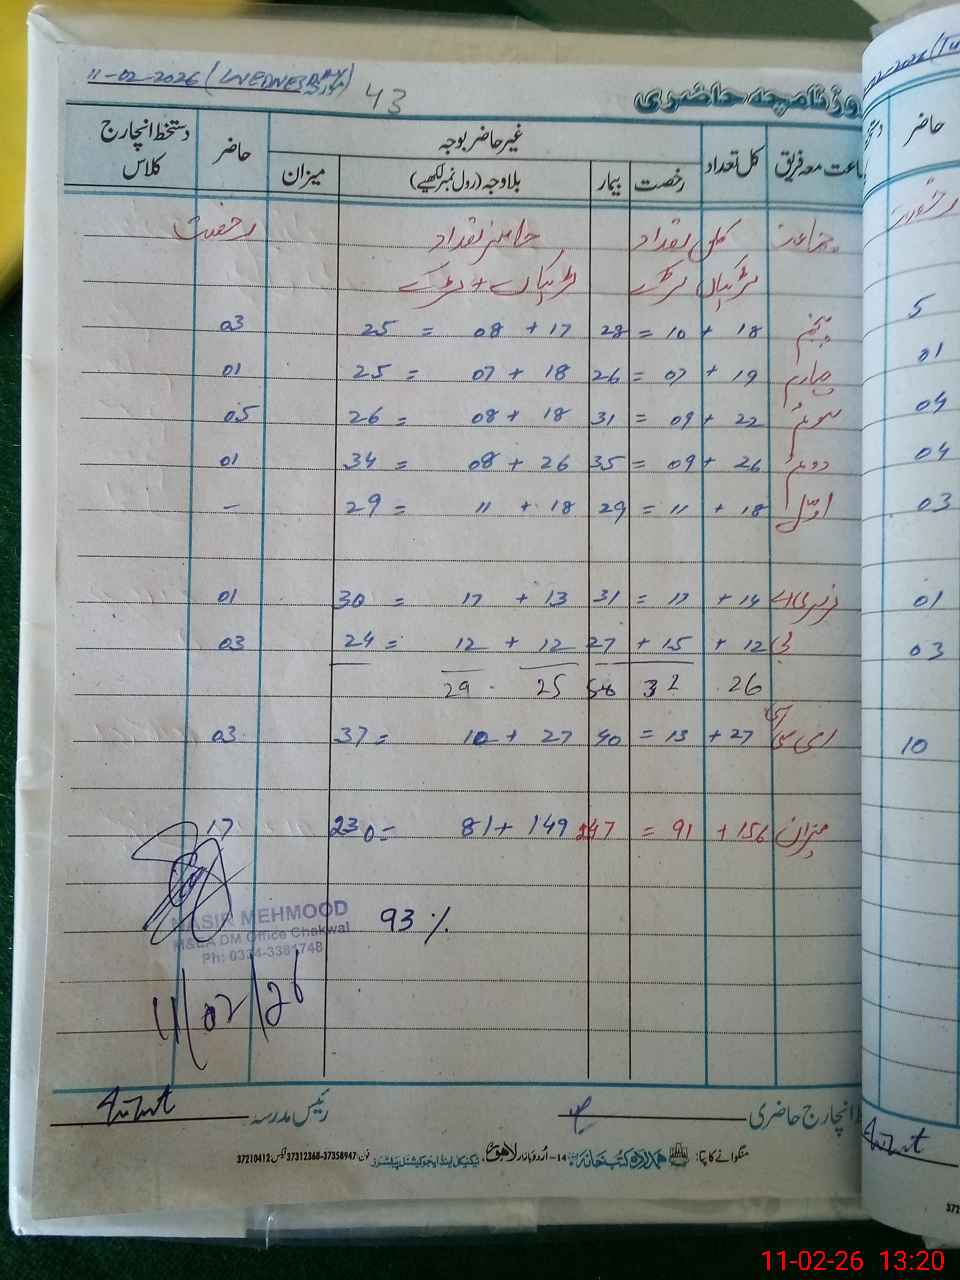 11-02-2026 (WEDNESDAY) 43
روزنامچہ حاضری
جماعت معہ فریق کل تعداد غیر حاضر بوجہ حاضر دستخط انچارج کلاس
رخصت بیمار بلاوجہ (رول نمبر لکھیے) میزان
جماعت کل تعداد حاضر تعداد رخصت
لڑکیاں لڑکے لڑکیاں + لڑکے
پنجم 18 + 10 = 28 17 + 08 = 25 03
چہارم 19 + 07 = 26 18 + 07 = 25 01
سوئم 22 + 09 = 31 18 + 08 = 26 05
دوئم 26 + 09 = 35 26 + 08 = 34 01
اوّل 18 + 11 = 29 18 + 11 = 29 –
نرسری اے 14 + 17 = 31 13 + 17 = 30 01
بی 12 + 15 = 27 12 + 12 = 24 03
26 32 58 25 29
ای سی ای 27 + 13 = 40 27 + 10 = 37 03
میزان 156 + 91 = 247 149 + 81 = 230 17
93 %
NASIR MEHMOOD
M&EA DM Office Chakwal
Ph: 0334-3381748
11/02/26
انچارج حاضری رئیس مدرسہ
منگوانے کا پتا: ہمدرد کتب خانہ 14- اُردو بازار لاہور، ٹیکنیکل اینڈ ایجوکیشنل پبلشرز فون 37358947-37312368 فیکس: 37210412
حاضر
5
01
04
04
03
01
03
10
11-02-26 13:20